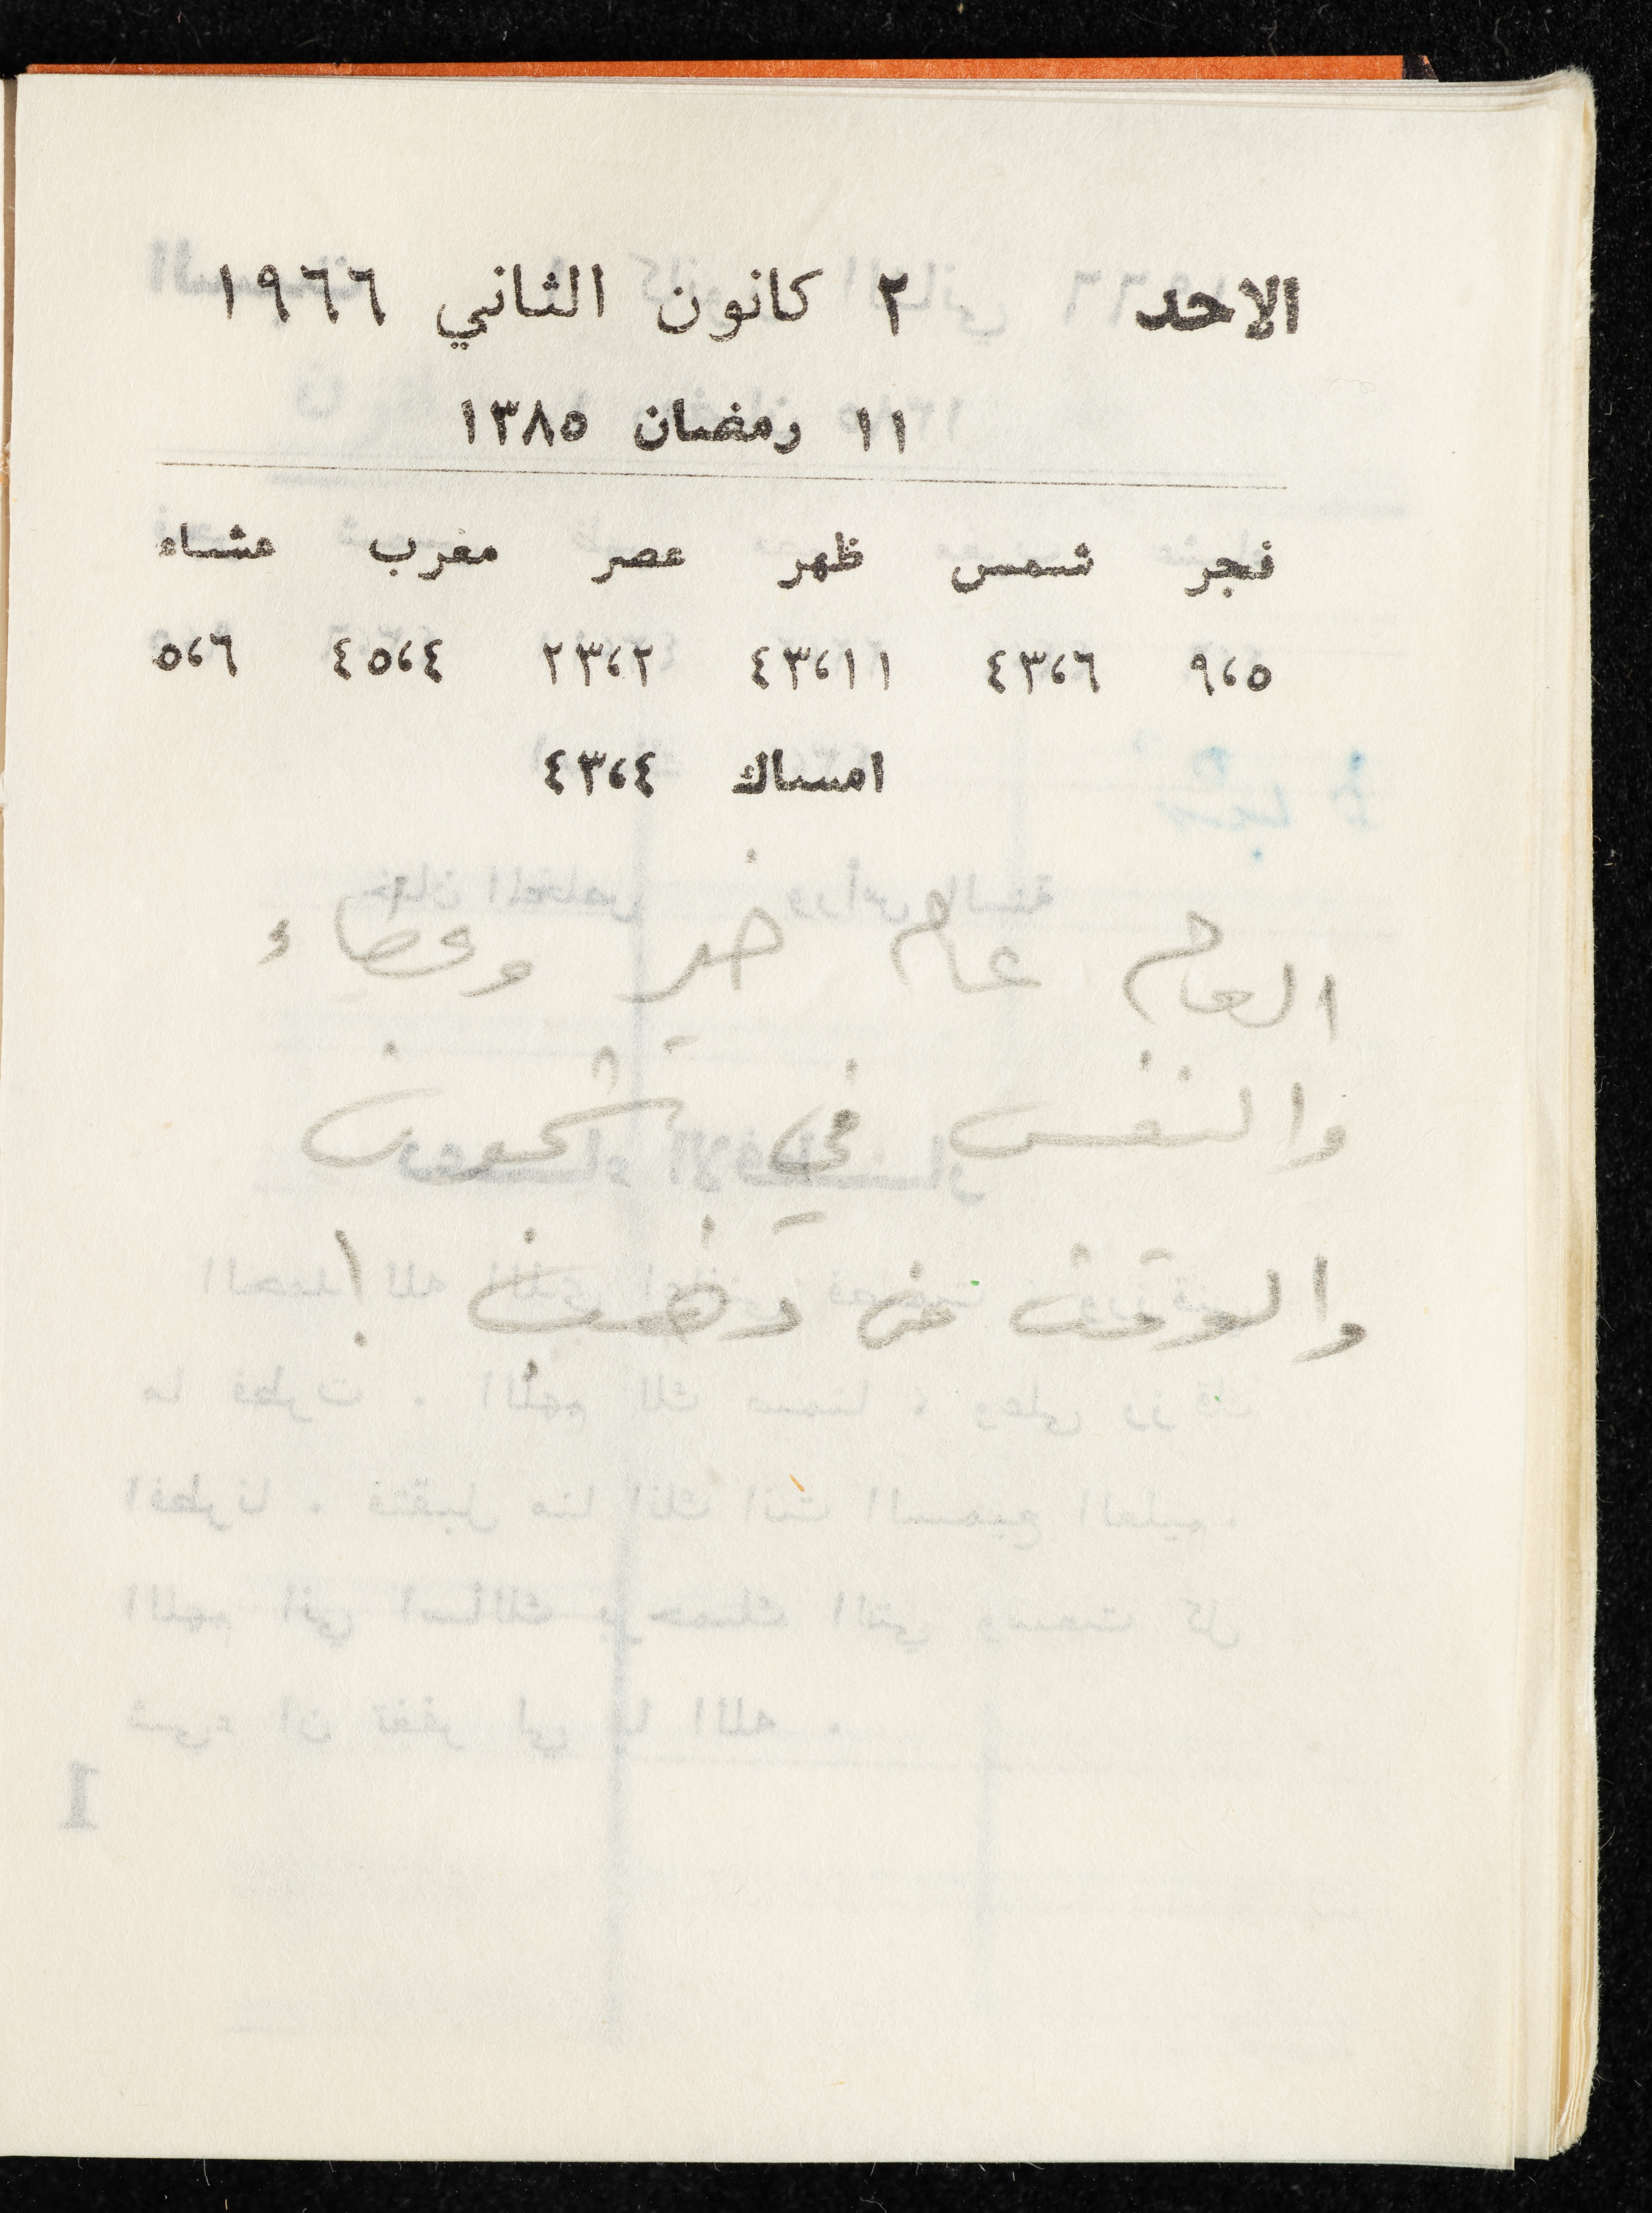 الاحد ٢ كانون الثاني ١٩٦٦
١١ رمضان ١٣٨٥
فجر شمس ظهر عصر مغرب عشاء
٩،٥ ٤٣،٦ ٤٣،١١ ٢٣،٢ ٤٥،٤ ٥،٦
امساك ٤٣،٤
العام عام خير وعطاء
والنفس في شجون
والوقت من ذهب !